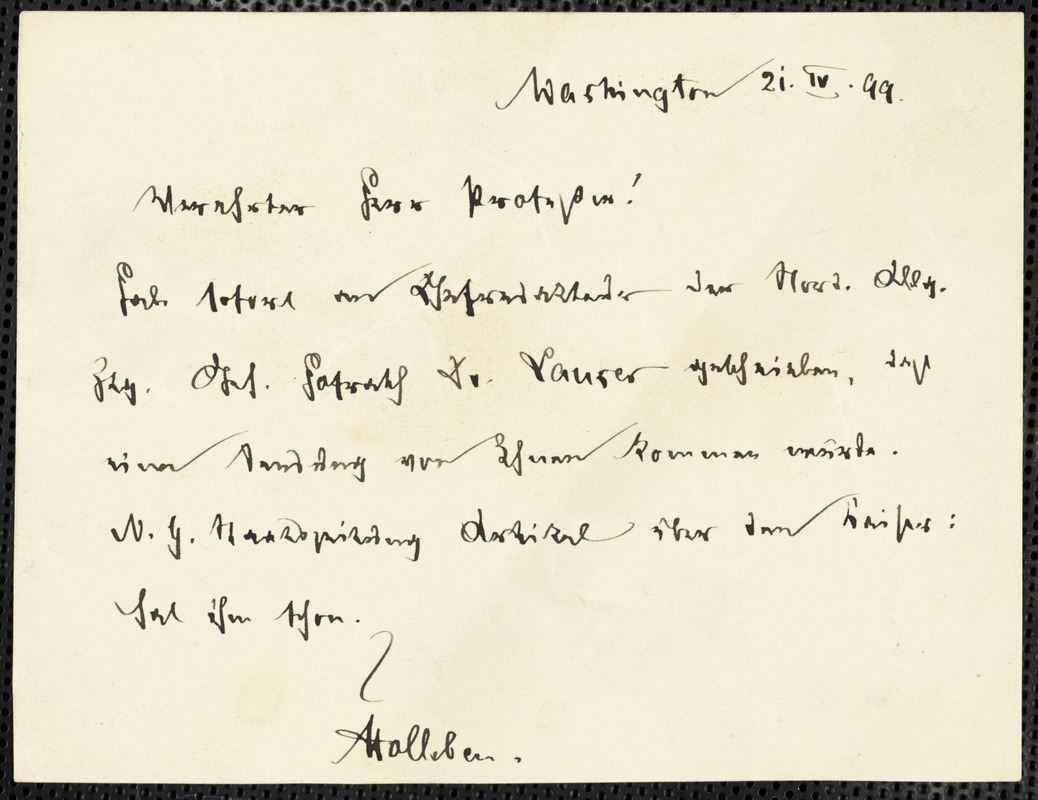 Washington 21. IV. 99.
Verehrter Herr Professor!
Habe sofort an Chefredakteur der Nord. Allg.
Ztg. Geh. Hofrath Dr. Lauser geschrieben, daß
eine Sendung von Ihnen kommen würde.
N. Y. Staatszeitung Artikel über den Kaiser:
hat ihn schon.
Holleben.